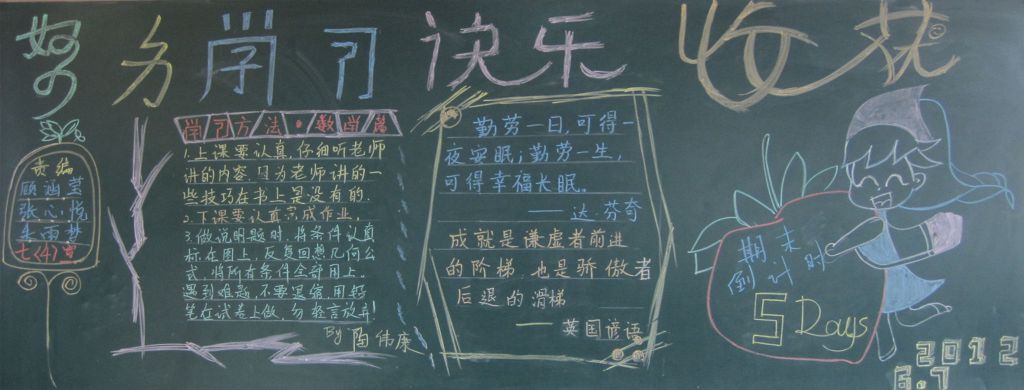 努力学习 快乐收获
责编
顾涵莹
张心悦
朱雨梦
七(4)宣
学习方法·数学篇
1.上课要认真,仔细听老师
讲的内容,因为老师讲的一
些技巧在书上是没有的.
2.下课要认真完成作业,
3.做说明题时,将条件认真
标在图上,反复回想几何公
式,将所有条件全部用上.
遇到难题,不要退缩,用铅
笔在试卷上做,勿轻言放弃!
By 陶伟康
勤劳一日,可得一
夜安眠;勤劳一生,
可得幸福长眠。
——达·芬奇
成就是谦虚者前进
的阶梯,也是骄傲者
后退的滑梯
——英国谚语
期末
倒计时
5 Days
2012
6.7